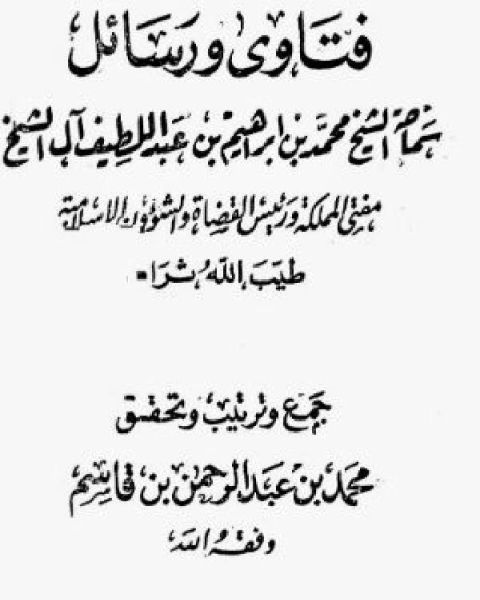 فتاوى ورسائل
سماحة الشيخ محمد بن إبراهيم بن عبد اللطيف آل الشيخ
مفتي المملكة ورئيس القضاة والشؤون الإسلامية
طيّبَ اللهُ ثراه
جمع وترتيب وتحقيق
محمد بن عبد الرحمن بن قاسم
وفقه الله